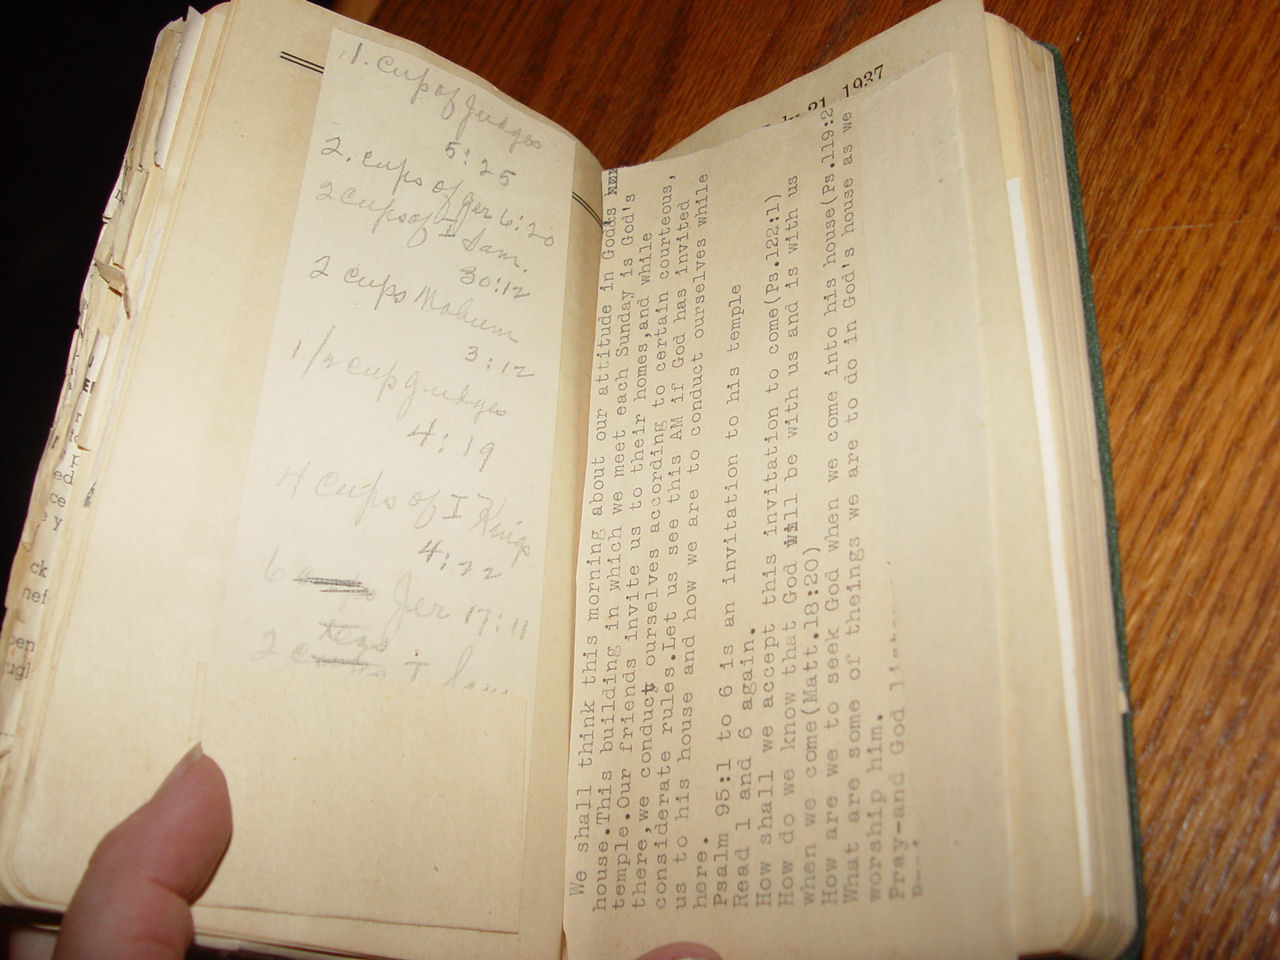 1. Cup of Judges
5:25
2. cups of Jer 6:20
2 cups of I Sam.
30:12
2 cups Nahum
3:12
1/2 cup Judges
4:19
4 cups of I Kings
4:22
6 Jer 17:11
2 I
21 1937
We shall think this morning about our attitude in God's
house.This building in which we meet each Sunday is God's
temple.Our friends invite us to their homes,and while
there,we conduct ourselves according to certain courteous,
considerate rules.Let us see this AM if God has invited
us to his house and how we are to conduct ourselves while
here.
Psalm 95:1 to 6 is an invitation to his temple
Read 1 and 6 again.
How shall we accept this invitation to come(Ps.122:1)
How do we know that God will be with us and is with us
when we come(Matt.18:20)
How are we to seek God when we come into his house(Ps.119:2
What are some of theings we are to do in God's house as we
worship him.
Pray-and God
ed
ce
ck
nef